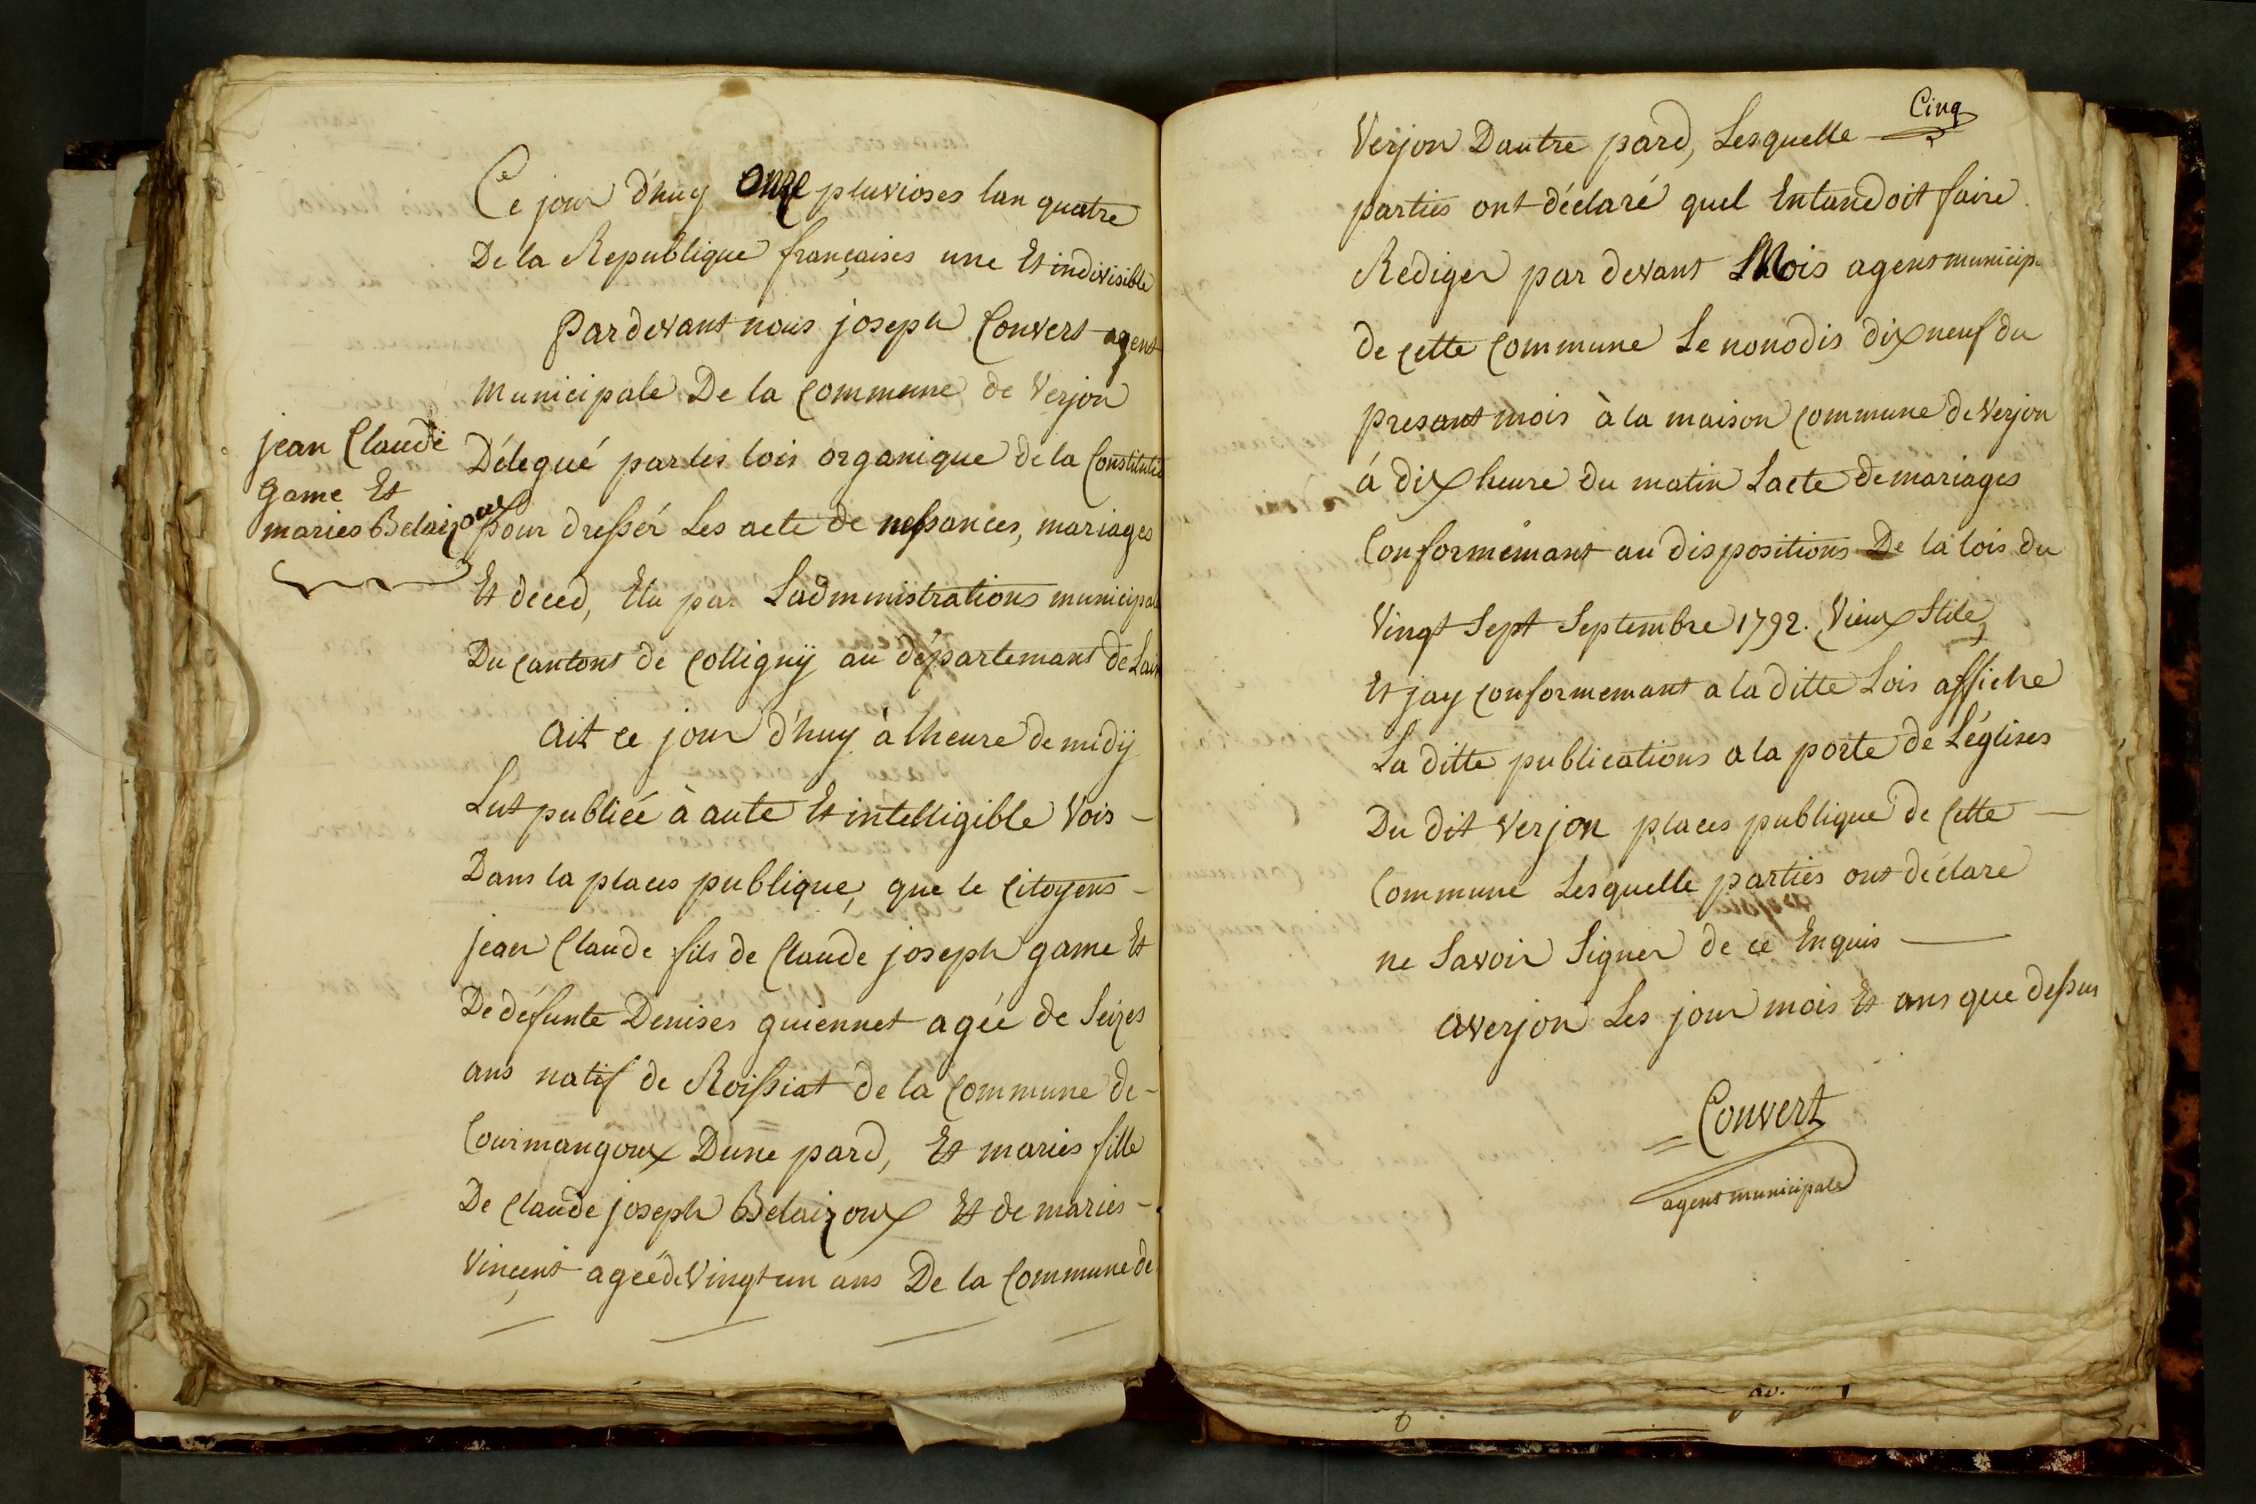 jean Claude
Game Et
maries Belaizoux
Ce jour d'huy onze pluvioses lan quatre
De la Republique françaises une Et indivisible
Pardevant nous joseph Convert agent
Municipale De la Commune de Verjon
Délegué par les lois organique de la Constituti
pour dresser Les acte de nessances, mariages
Et déced, Elu par Ladmmistrations municipal
Du cantons de Colligny au département de Lain
Ait ce jour d'huy à lheure de midy
Lut publiéé à aute Et intelligible Vois -
Dans la places publique, que le Citoyens -
jean Claude fils de Claude joseph game Et
De défunte Denises guiennet agée de Seizes
ans natif de Roissiat de la Commune de -
Courmangoux Dune pard, Et maries fille
De Claude joseph Belaizoux Et de maries -
Vincent ageé de Vingt un ans De la Commune de
Cinq
Verjon Dautre pard, Lesquelle
parties ont déclaré quel Entandoit faire
Rediger par devant Mois agent municip
de cette Commune Le nonodis dix neuf du
presant mois à la maison Commune de Verjon
á dix heure Du matin Lacte de mariages
Conformémant au dispositions De la lois du
Vingt Sept Septembre 1792. Vieux Stile,
Et jay Conformemant a la ditte Lois affiche
La ditte publications a la porte de Léglises
Du dit Verjon places publique de Cette
Commune Lesquelle parties ont déclare
ne Savoir Signer de ce Enquis
averjon Les jour mois Et ans que dessus
Convert
agent municipale